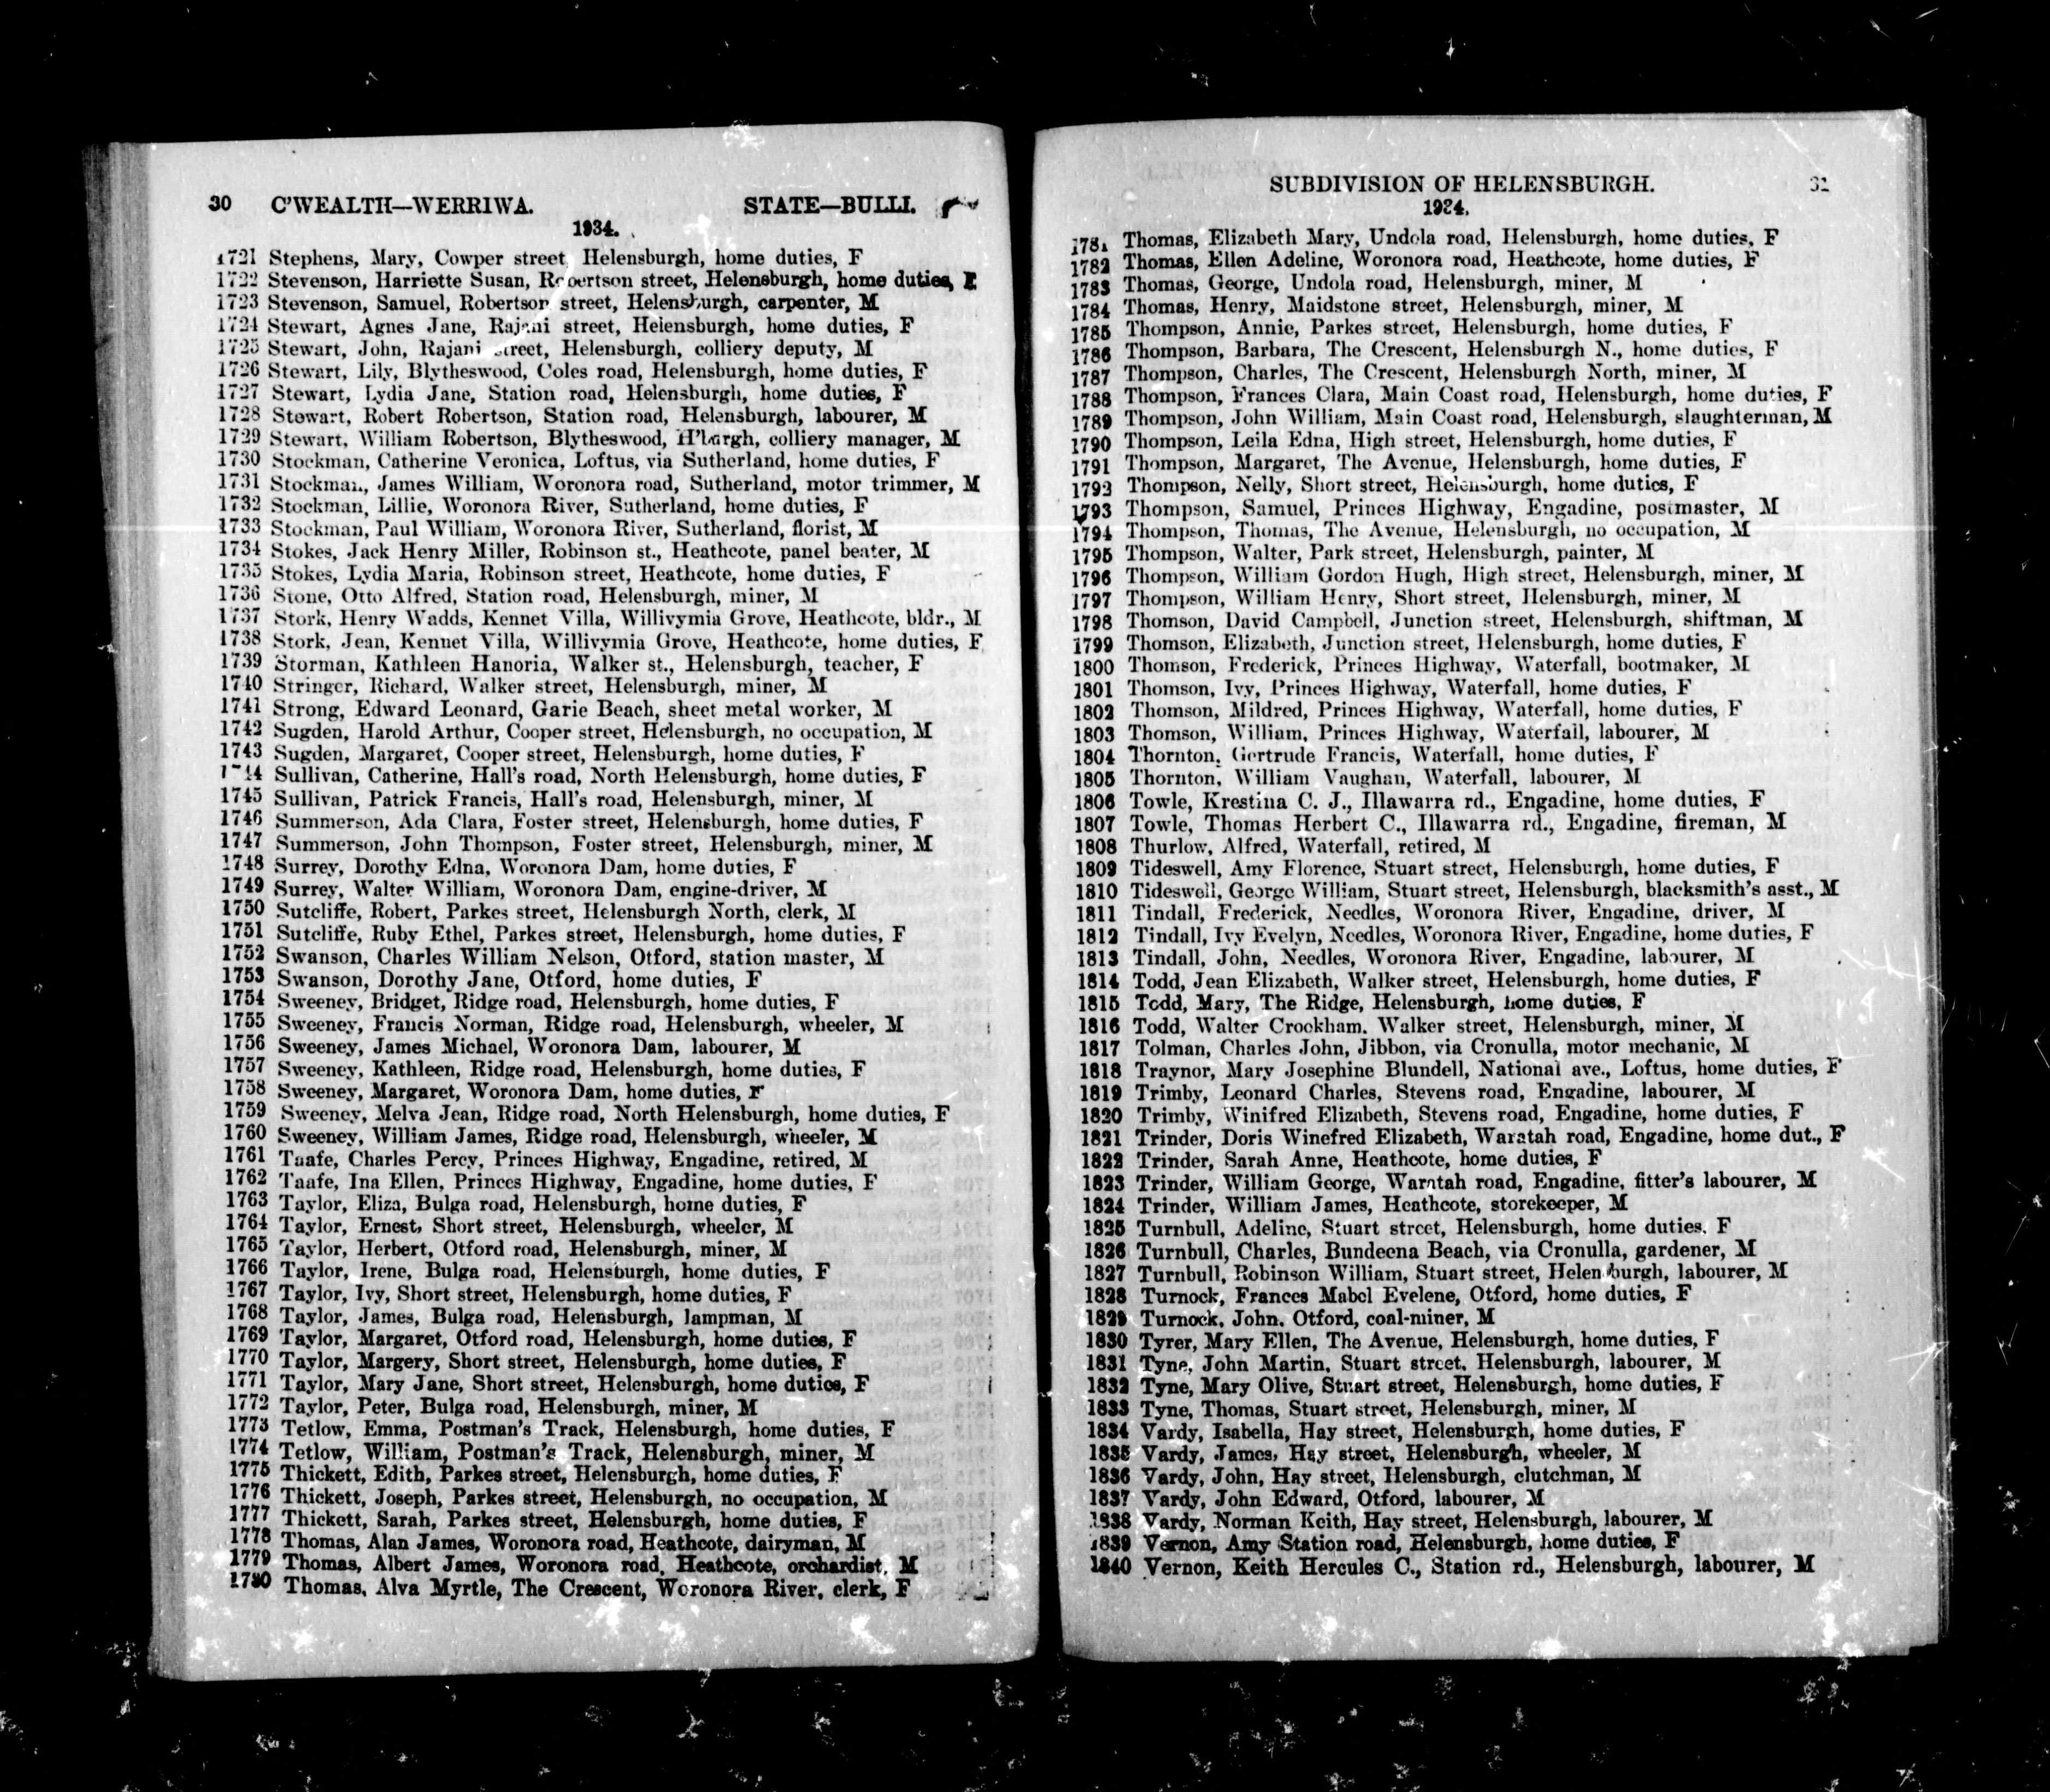 30 C'WEALTH—WERRIWA. STATE—BULLI.
1934.
1721 Stephens, Mary, Cowper street, Helensburgh, home duties, F
1722 Stevenson, Harriette Susan, Robertson street, Helensburgh, home duties, F
1723 Stevenson, Samuel, Robertson street, Helensburgh, carpenter, M
1724 Stewart, Agnes Jane, Rajani street, Helensburgh, home duties, F
1725 Stewart, John, Rajani street, Helensburgh, colliery deputy, M
1726 Stewart, Lily, Blytheswood, Coles road, Helensburgh, home duties, F
1727 Stewart, Lydia Jane, Station road, Helensburgh, home duties, F
1728 Stewart, Robert Robertson, Station road, Helensburgh, labourer, M
1729 Stewart, William Robertson, Blytheswood, H'burgh, colliery manager, M
1730 Stockman, Catherine Veronica, Loftus, via Sutherland, home duties, F
1731 Stockman, James William, Woronora road, Sutherland, motor trimmer, M
1732 Stockman, Lillie, Woronora River, Sutherland, home duties, F
1733 Stockman, Paul William, Woronora River, Sutherland, florist, M
1734 Stokes, Jack Henry Miller, Robinson st., Heathcote, panel beater, M
1735 Stokes, Lydia Maria, Robinson street, Heathcote, home duties, F
1736 Stone, Otto Alfred, Station road, Helensburgh, miner, M
1737 Stork, Henry Wadds, Kennet Villa, Willivymia Grove, Heathcote, bldr., M
1738 Stork, Jean, Kennet Villa, Willivymia Grove, Heathcote, home duties, F
1739 Storman, Kathleen Hanoria, Walker st., Helensburgh, teacher, F
1740 Stringer, Richard, Walker street, Helensburgh, miner, M
1741 Strong, Edward Leonard, Garie Beach, sheet metal worker, M
1742 Sugden, Harold Arthur, Cooper street, Helensburgh, no occupation, M
1743 Sugden, Margaret, Cooper street, Helensburgh, home duties, F
1744 Sullivan, Catherine, Hall's road, North Helensburgh, home duties, F
1745 Sullivan, Patrick Francis, Hall's road, Helensburgh, miner, M
1746 Summerson, Ada Clara, Foster street, Helensburgh, home duties, F
1747 Summerson, John Thompson, Foster street, Helensburgh, miner, M
1748 Surrey, Dorothy Edna, Woronora Dam, home duties, F
1749 Surrey, Walter William, Woronora Dam, engine-driver, M
1750 Sutcliffe, Robert, Parkes street, Helensburgh North, clerk, M
1751 Sutcliffe, Ruby Ethel, Parkes street, Helensburgh, home duties, F
1752 Swanson, Charles William Nelson, Otford, station master, M
1753 Swanson, Dorothy Jane, Otford, home duties, F
1754 Sweeney, Bridget, Ridge road, Helensburgh, home duties, F
1755 Sweeney, Francis Norman, Ridge road, Helensburgh, wheeler, M
1756 Sweeney, James Michael, Woronora Dam, labourer, M
1757 Sweeney, Kathleen, Ridge road, Helensburgh, home duties, F
1758 Sweeney, Margaret, Woronora Dam, home duties, F
1759 Sweeney, Melva Jean, Ridge road, North Helensburgh, home duties, F
1760 Sweeney, William James, Ridge road, Helensburgh, wheeler, M
1761 Taafe, Charles Percy, Princes Highway, Engadine, retired, M
1762 Taafe, Ina Ellen, Princes Highway, Engadine, home duties, F
1763 Taylor, Eliza, Bulga road, Helensburgh, home duties, F
1764 Taylor, Ernest, Short street, Helensburgh, wheeler, M
1765 Taylor, Herbert, Otford road, Helensburgh, miner, M
1766 Taylor, Irene, Bulga road, Helensburgh, home duties, F
1767 Taylor, Ivy, Short street, Helensburgh, home duties, F
1768 Taylor, James, Bulga road, Helensburgh, lampman, M
1769 Taylor, Margaret, Otford road, Helensburgh, home duties, F
1770 Taylor, Margery, Short street, Helensburgh, home duties, F
1771 Taylor, Mary Jane, Short street, Helensburgh, home duties, F
1772 Taylor, Peter, Bulga road, Helensburgh, miner, M
1773 Tetlow, Emma, Postman's Track, Helensburgh, home duties, F
1774 Tetlow, William, Postman's Track, Helensburgh, miner, M
1775 Thickett, Edith, Parkes street, Helensburgh, home duties, F
1776 Thickett, Joseph, Parkes street, Helensburgh, no occupation, M
1777 Thickett, Sarah, Parkes street, Helensburgh, home duties, F
1778 Thomas, Alan James, Woronora road, Heathcote, dairyman, M
1779 Thomas, Albert James, Woronora road, Heathcote, orchardist, M
1780 Thomas, Alva Myrtle, The Crescent, Woronora River, clerk, F
SUBDIVISION OF HELENSBURGH. 31
1934.
1781 Thomas, Elizabeth Mary, Undola road, Helensburgh, home duties, F
1782 Thomas, Ellen Adeline, Woronora road, Heathcote, home duties, F
1783 Thomas, George, Undola road, Helensburgh, miner, M
1784 Thomas, Henry, Maidstone street, Helensburgh, miner, M
1785 Thompson, Annie, Parkes street, Helensburgh, home duties, F
1786 Thompson, Barbara, The Crescent, Helensburgh N., home duties, F
1787 Thompson, Charles, The Crescent, Helensburgh North, miner, M
1788 Thompson, Frances Clara, Main Coast road, Helensburgh, home duties, F
1789 Thompson, John William, Main Coast road, Helensburgh, slaughterman, M
1790 Thompson, Leila Edna, High street, Helensburgh, home duties, F
1791 Thompson, Margaret, The Avenue, Helensburgh, home duties, F
1792 Thompson, Nelly, Short street, Helensburgh, home duties, F
1793 Thompson, Samuel, Princes Highway, Engadine, postmaster, M
1794 Thompson, Thomas, The Avenue, Helensburgh, no occupation, M
1795 Thompson, Walter, Park street, Helensburgh, painter, M
1796 Thompson, William Gordon Hugh, High street, Helensburgh, miner, M
1797 Thompson, William Henry, Short street, Helensburgh, miner, M
1798 Thomson, David Campbell, Junction street, Helensburgh, shiftman, M
1799 Thomson, Elizabeth, Junction street, Helensburgh, home duties, F
1800 Thomson, Frederick, Princes Highway, Waterfall, bootmaker, M
1801 Thomson, Ivy, Princes Highway, Waterfall, home duties, F
1802 Thomson, Mildred, Princes Highway, Waterfall, home duties, F
1803 Thomson, William, Princes Highway, Waterfall, labourer, M
1804 Thornton, Gertrude Francis, Waterfall, home duties, F
1805 Thornton, William Vaughan, Waterfall, labourer, M
1806 Towle, Krestina C. J., Illawarra rd., Engadine, home duties, F
1807 Towle, Thomas Herbert C., Illawarra rd., Engadine, fireman, M
1808 Thurlow, Alfred, Waterfall, retired, M
1809 Tideswell, Amy Florence, Stuart street, Helensburgh, home duties, F
1810 Tideswell, George William, Stuart street, Helensburgh, blacksmith's asst., M
1811 Tindall, Frederick, Needles, Woronora River, Engadine, driver, M
1812 Tindall, Ivy Evelyn, Needles, Woronora River, Engadine, home duties, F
1813 Tindall, John, Needles, Woronora River, Engadine, labourer, M
1814 Todd, Jean Elizabeth, Walker street, Helensburgh, home duties, F
1815 Todd, Mary, The Ridge, Helensburgh, home duties, F
1816 Todd, Walter Crookham. Walker street, Helensburgh, miner, M
1817 Tolman, Charles John, Jibbon, via Cronulla, motor mechanic, M
1818 Traynor, Mary Josephine Blundell, National ave., Loftus, home duties, F
1819 Trimby, Leonard Charles, Stevens road, Engadine, labourer, M
1820 Trimby, Winifred Elizabeth, Stevens road, Engadine, home duties, F
1821 Trinder, Doris Winefred Elizabeth, Waratah road, Engadine, home dut., F
1822 Trinder, Sarah Anne, Heathcote, home duties, F
1823 Trinder, William George, Waratah road, Engadine, fitter's labourer, M
1824 Trinder, William James, Heathcote, storekeeper, M
1825 Turnbull, Adeline, Stuart street, Helensburgh, home duties, F
1826 Turnbull, Charles, Bundeena Beach, via Cronulla, gardener, M
1827 Turnbull, Robinson William, Stuart street, Helensburgh, labourer, M
1828 Turnock, Frances Mabel Evelene, Otford, home duties, F
1829 Turnock, John. Otford, coal-miner, M
1830 Tyrer, Mary Ellen, The Avenue, Helensburgh, home duties, F
1831 Tyne, John Martin, Stuart street, Helensburgh, labourer, M
1832 Tyne, Mary Olive, Stuart street, Helensburgh, home duties, F
1833 Tyne, Thomas, Stuart street, Helensburgh, miner, M
1834 Vardy, Isabella, Hay street, Helensburgh, home duties, F
1835 Vardy, James, Hay street, Helensburgh, wheeler, M
1836 Vardy, John, Hay street, Helensburgh, clutchman, M
1837 Vardy, John Edward, Otford, labourer, M
1838 Vardy, Norman Keith, Hay street, Helensburgh, labourer, M
1839 Vernon, Amy Station road, Helensburgh, home duties, F
1840 Vernon, Keith Hercules C., Station rd., Helensburgh, labourer, M